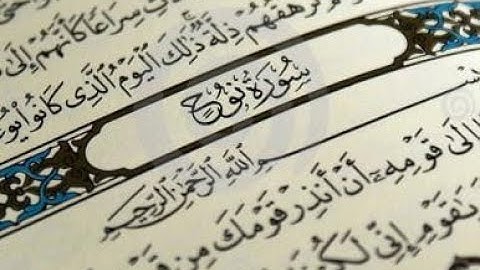 سِرَاعًا كَأَنَّهُمْ إِلَىٰ
تَرْهَقُهُمْ ذِلَّةٌ ذَٰلِكَ الْيَوْمُ الَّذِي كَانُوا
سُورَةُ نُوحٍ
بِسْمِ اللَّهِ الرَّحْمَٰنِ الرَّحِيمِ
إِلَىٰ قَوْمِهِ أَنْ أَنذِرْ قَوْمَكَ مِن
يَٰقَوْمِ إِنِّي لَكُمْ